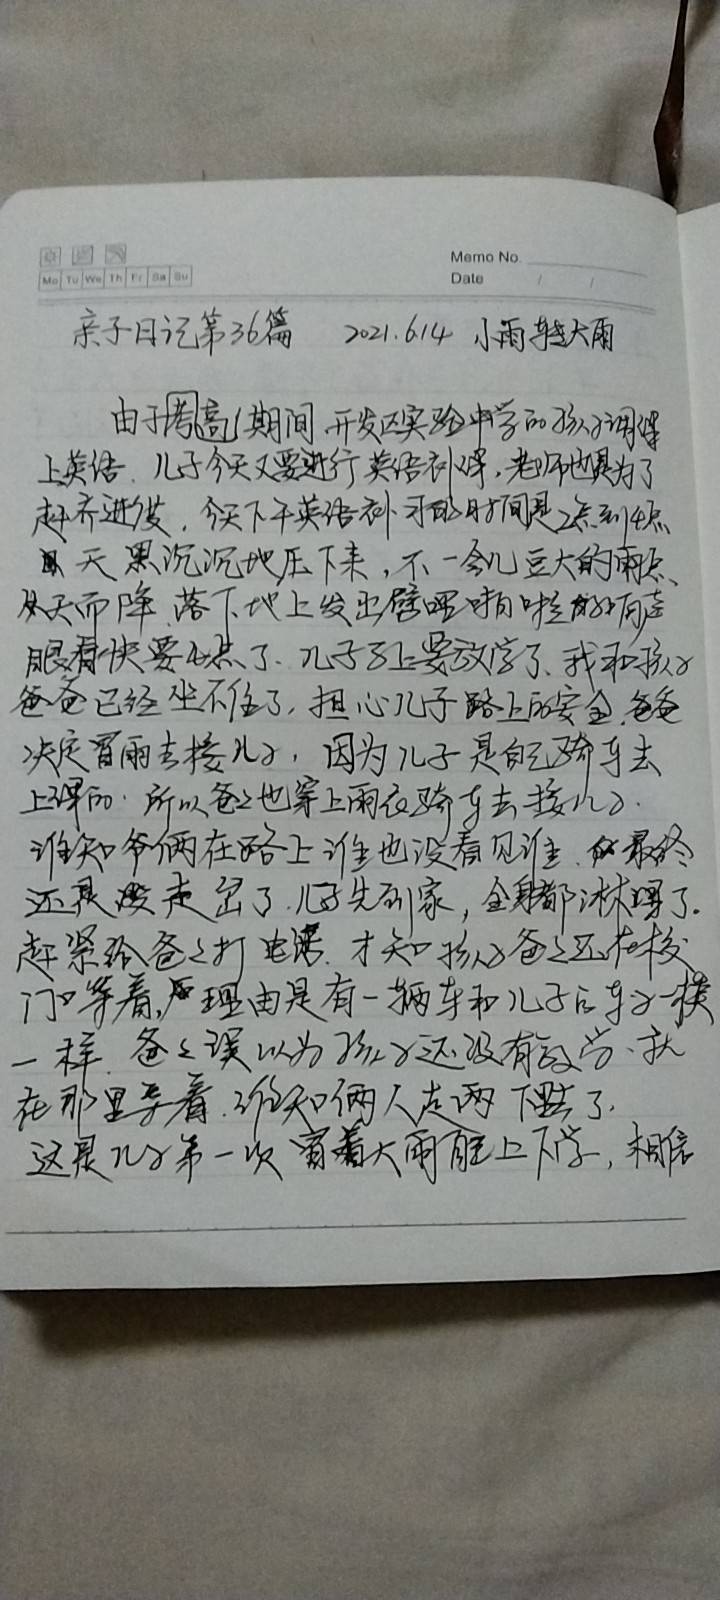 Memo No.
Mo Tu We Th Fr Sa Su
Date / /
亲子日记第36篇 2021.6.14 小雨转大雨
由于考高期间,开发区实验中学的孩子调课
上英语.儿子今天又要进行英语补课,老师也是为了
赶齐进度,今天下午英语补习的时间是2点到4点
天黑沉沉地压下来,不一会儿豆大的雨点、
从天而降.落下地上发出劈哩啪啦的响声
眼看快要4点了、儿子马上要放学了、我和孩子
爸爸已经坐不住了,担心儿子路上的安全.爸爸
决定冒雨去接儿子,因为儿子是自己骑车去
上课的.所以爸爸也穿上雨衣骑车去接儿子.
谁知爷俩在路上谁也没看见谁.最终
还是走岔了.儿子先到家,全身都淋噐了.
赶紧给爸爸打电话.才知孩子爸爸还在校
门口等着,理由是有一辆车和儿子的车子一模
一样.爸爸误以为孩子还没有放学、就
在那里等着.谁知俩人走两下黑去了.
这是儿子第一次冒着大雨骑上下学,相信